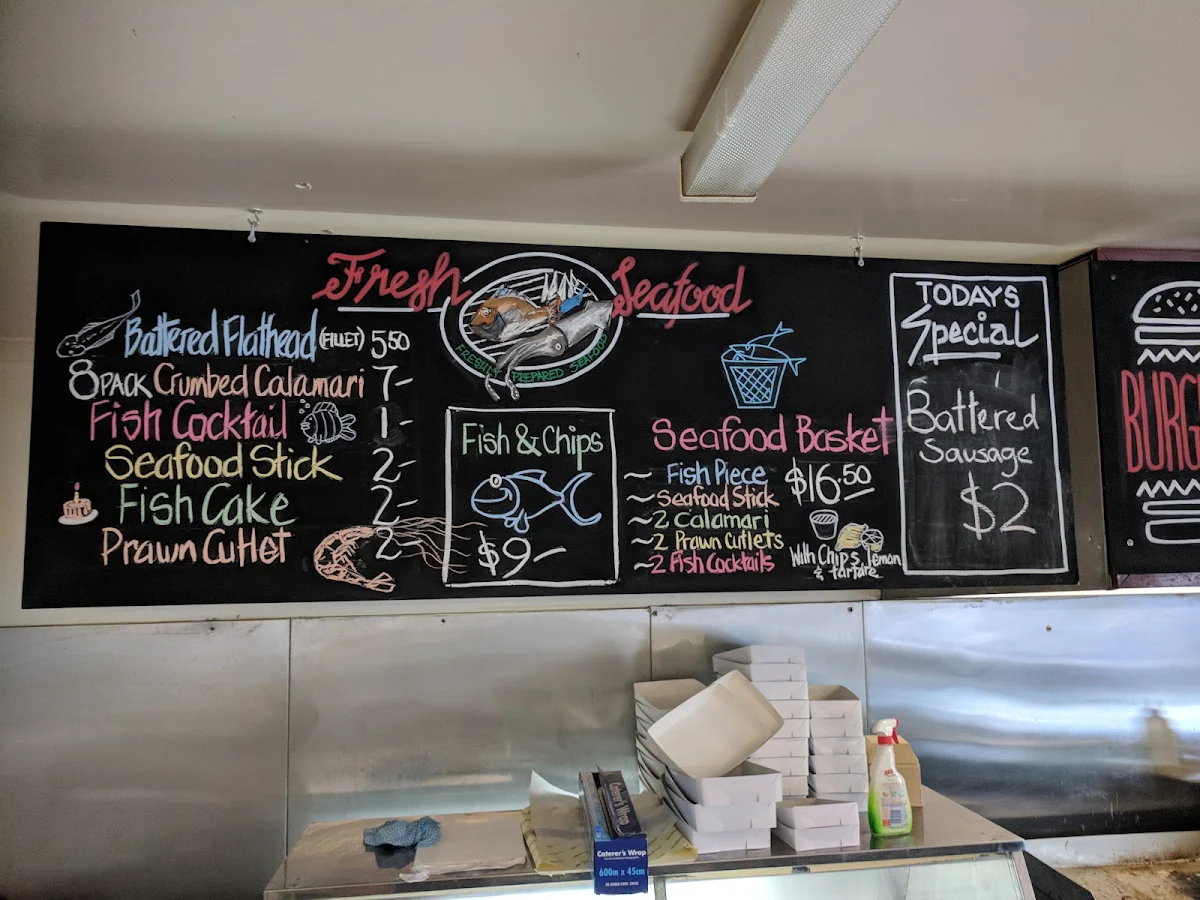 Fresh Seafood
FRESHLY PREPARED SEAFOOD
Battered Flathead (FILLET) 5.50
8 PACK Crumbed Calamari 7-
Fish Cocktail 1-
Seafood Stick 2-
Fish Cake 2-
Prawn Cutlet 2-
Fish & Chips
$9-
Seafood Basket
~ Fish Piece
~ Seafood Stick
~ 2 Calamari
~ 2 Prawn Cutlets
~ 2 Fish Cocktails
$16.50
With Chips lemon
& tartare
TODAYS
Special
Battered
Sausage
$2
BURG
Caterer's Wrap
Caterer's Wrap
600m x 45cm